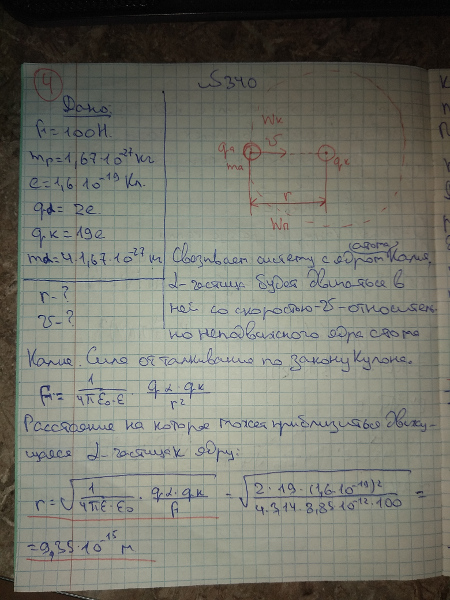 4
№340
Дано:
F1=100Н.
mp=1,67·10⁻²⁷кг
e=1,6·10⁻¹⁹Кл.
qα=2e
qк=19e
mα=4·1,67·10⁻²⁷кг
r-?
υ-?
Wк
υ
qα
mα
qк
r
Wп
(атома)
Связывает систему с ядром Калия,
α-частица будет двигаться в
ней со скоростью-υ-относитель-
но неподвижного ядра атома
Калия. Сила отталкивание по закону Кулона.
F1= 1/4πε₀·ε · qα·qк/r²
Расстояние на которое может приблизиться движу-
щаяся α-частица к ядру:
r=√(1/4πε·ε₀ · qα·qк/F) = √(2·19·(1,6·10⁻¹⁹)²/4·3,14·8,85·10⁻¹²·100) =
=9,35·10⁻¹⁵ м